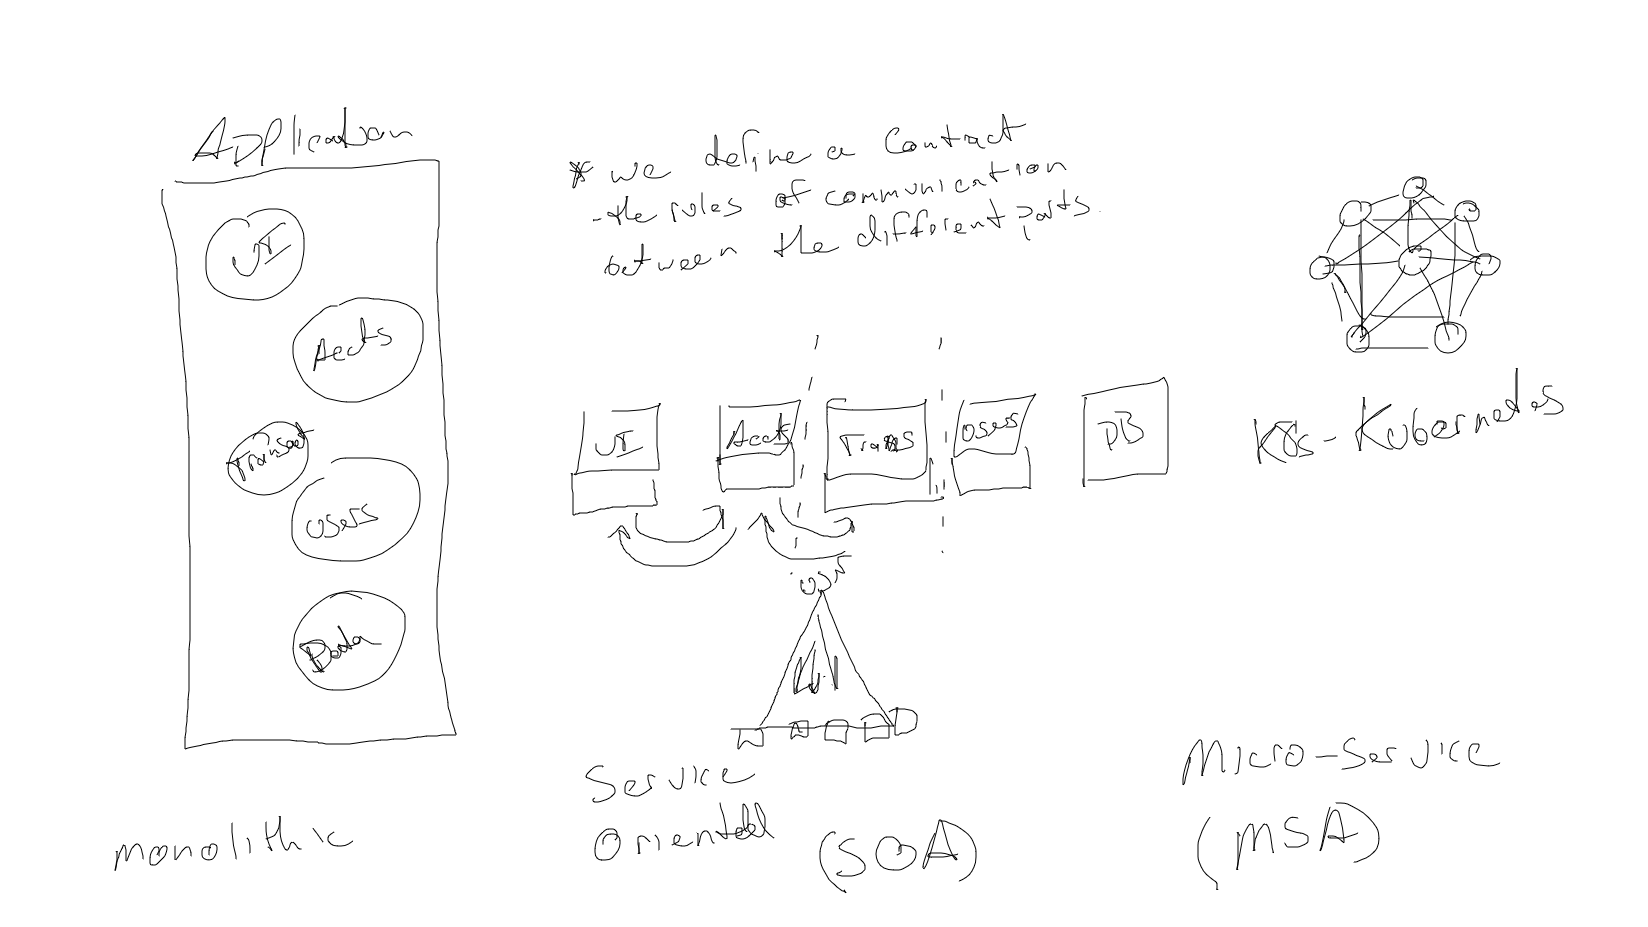 Application
UI
Accts
Transact
Users
Data
monolithic
* we define a Contract
- the rules of communication
between the different parts.
UI
Accts
Trans
Users
DB
Service
Oriented
(SOA)
K8s - Kubernetes
Micro-Service
(MSA)